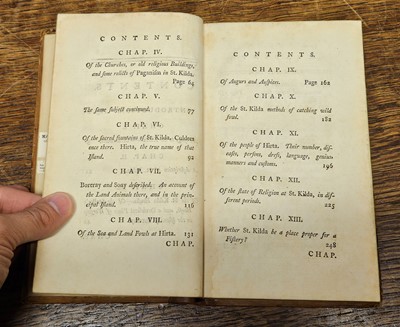 CONTENTS.
CHAP. IV.
Of the Churches, or old religious Buildings,
and some relicts of Paganism in St. Kilda.
Page 64
CHAP. V.
The same subject continued. 77
CHAP. VI.
Of the sacred fountains of St. Kilda, Culdees
once there. Hirta, the true name of that
Island. 92
CHAP. VII.
Boreray and Soay described: An account of
the Land Animals there, and in the prin-
cipal Island. 116
CHAP. VIII.
Of the Sea and Land Fowls at Hirta. 131
CHAP.
CONTENTS.
CHAP. IX.
Of Augurs and Auspices. Page 162
CHAP. X.
Of the St. Kilda methods of catching wild
fowl. 182
CHAP. XI.
Of the people of Hirta. Their number, dis-
eases, persons, dress, language, genius
manners and customs. 196
CHAP. XII.
Of the state of Religion at St. Kilda, in dif-
ferent periods. 225
CHAP. XIII.
Whether St. Kilda be a place proper for a
Fishery? 248
CHAP.